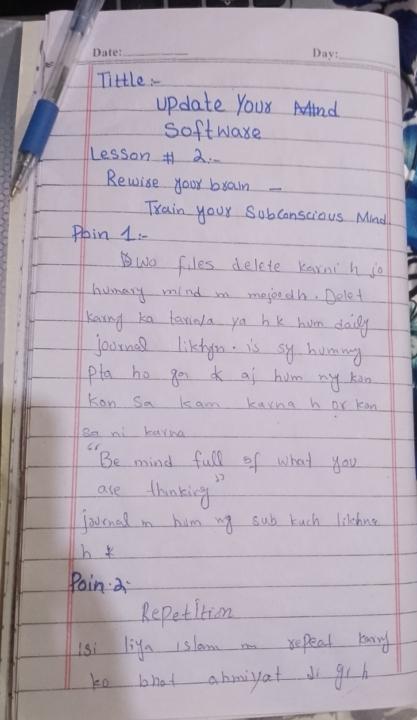 Date: Day:
Tittle:-
Update Your Mind
Software
Lesson # 2:-
Rewise your brain -
Train your Subconscious Mind
Poin 1:-
wo files delete karni h jo
humary mind m mojodh. Delet
karny ka tariqa ya h k hum daily
journal likhyn. is sy hummy
pta ho ga k aj hum ny kon
kon sa kam karna h or kon
sa ni karna
"Be mind full of what you
are thinking"
journal m hum ny sub kuch likhna
h
Poin.2:-
Repetition
isi liya islam m repeat karny
ko bhot ahmiyat di gi h